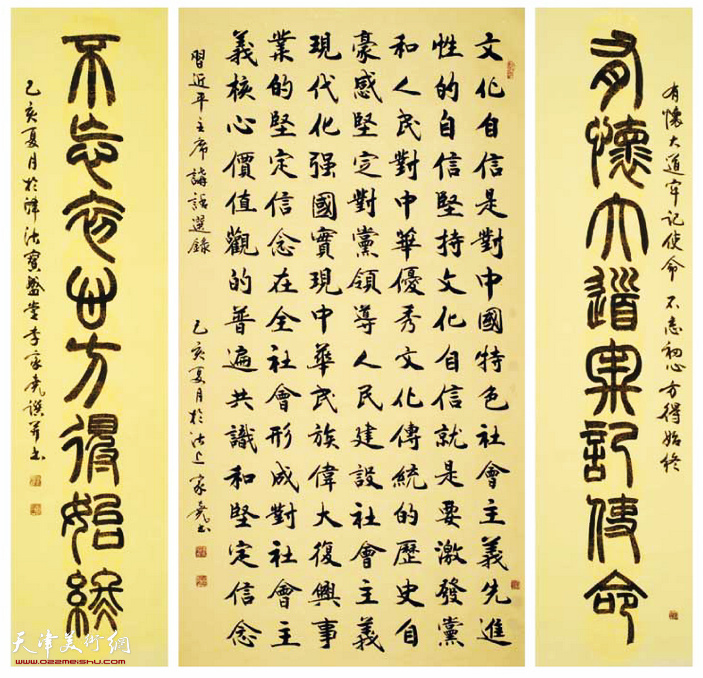 有懷大道牢記使命 不忘初心方得始終
有懷大道牢記使命
文化自信是對中國特色社會主義先進
性的自信堅持文化自信就是要激發黨
和人民對中華優秀文化傳統的歷史自
豪感堅定對黨領導人民建設社會主義
現代化强國實現中華民族偉大復興事
業的堅定信念在全社會形成對社會主
義核心價值觀的普遍共識和堅定信念
習近平主席講話選錄 己亥夏月於沽上家尭書
不忘初心方得始終
己亥夏月於津沽寶盤堂李家尭譔并書
天津美術網
www.022meishu.com